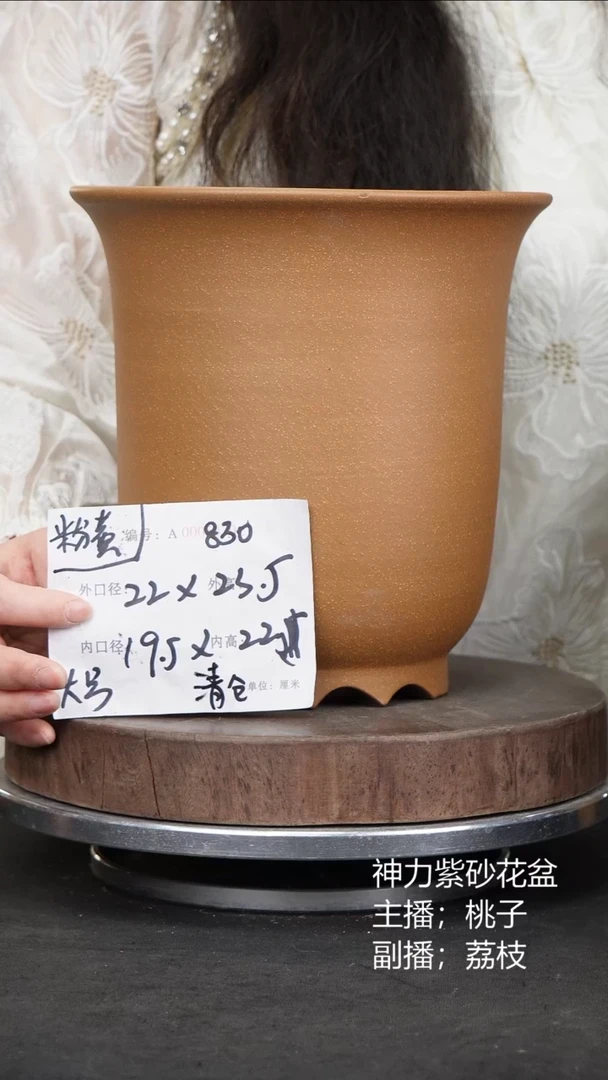 粉黄 编号：A 830
外口径：22×25.5
内口径：19.5×内高：22
大号 清仓 单位：厘米
神力紫砂花盆
主播；桃子
副播；荔枝